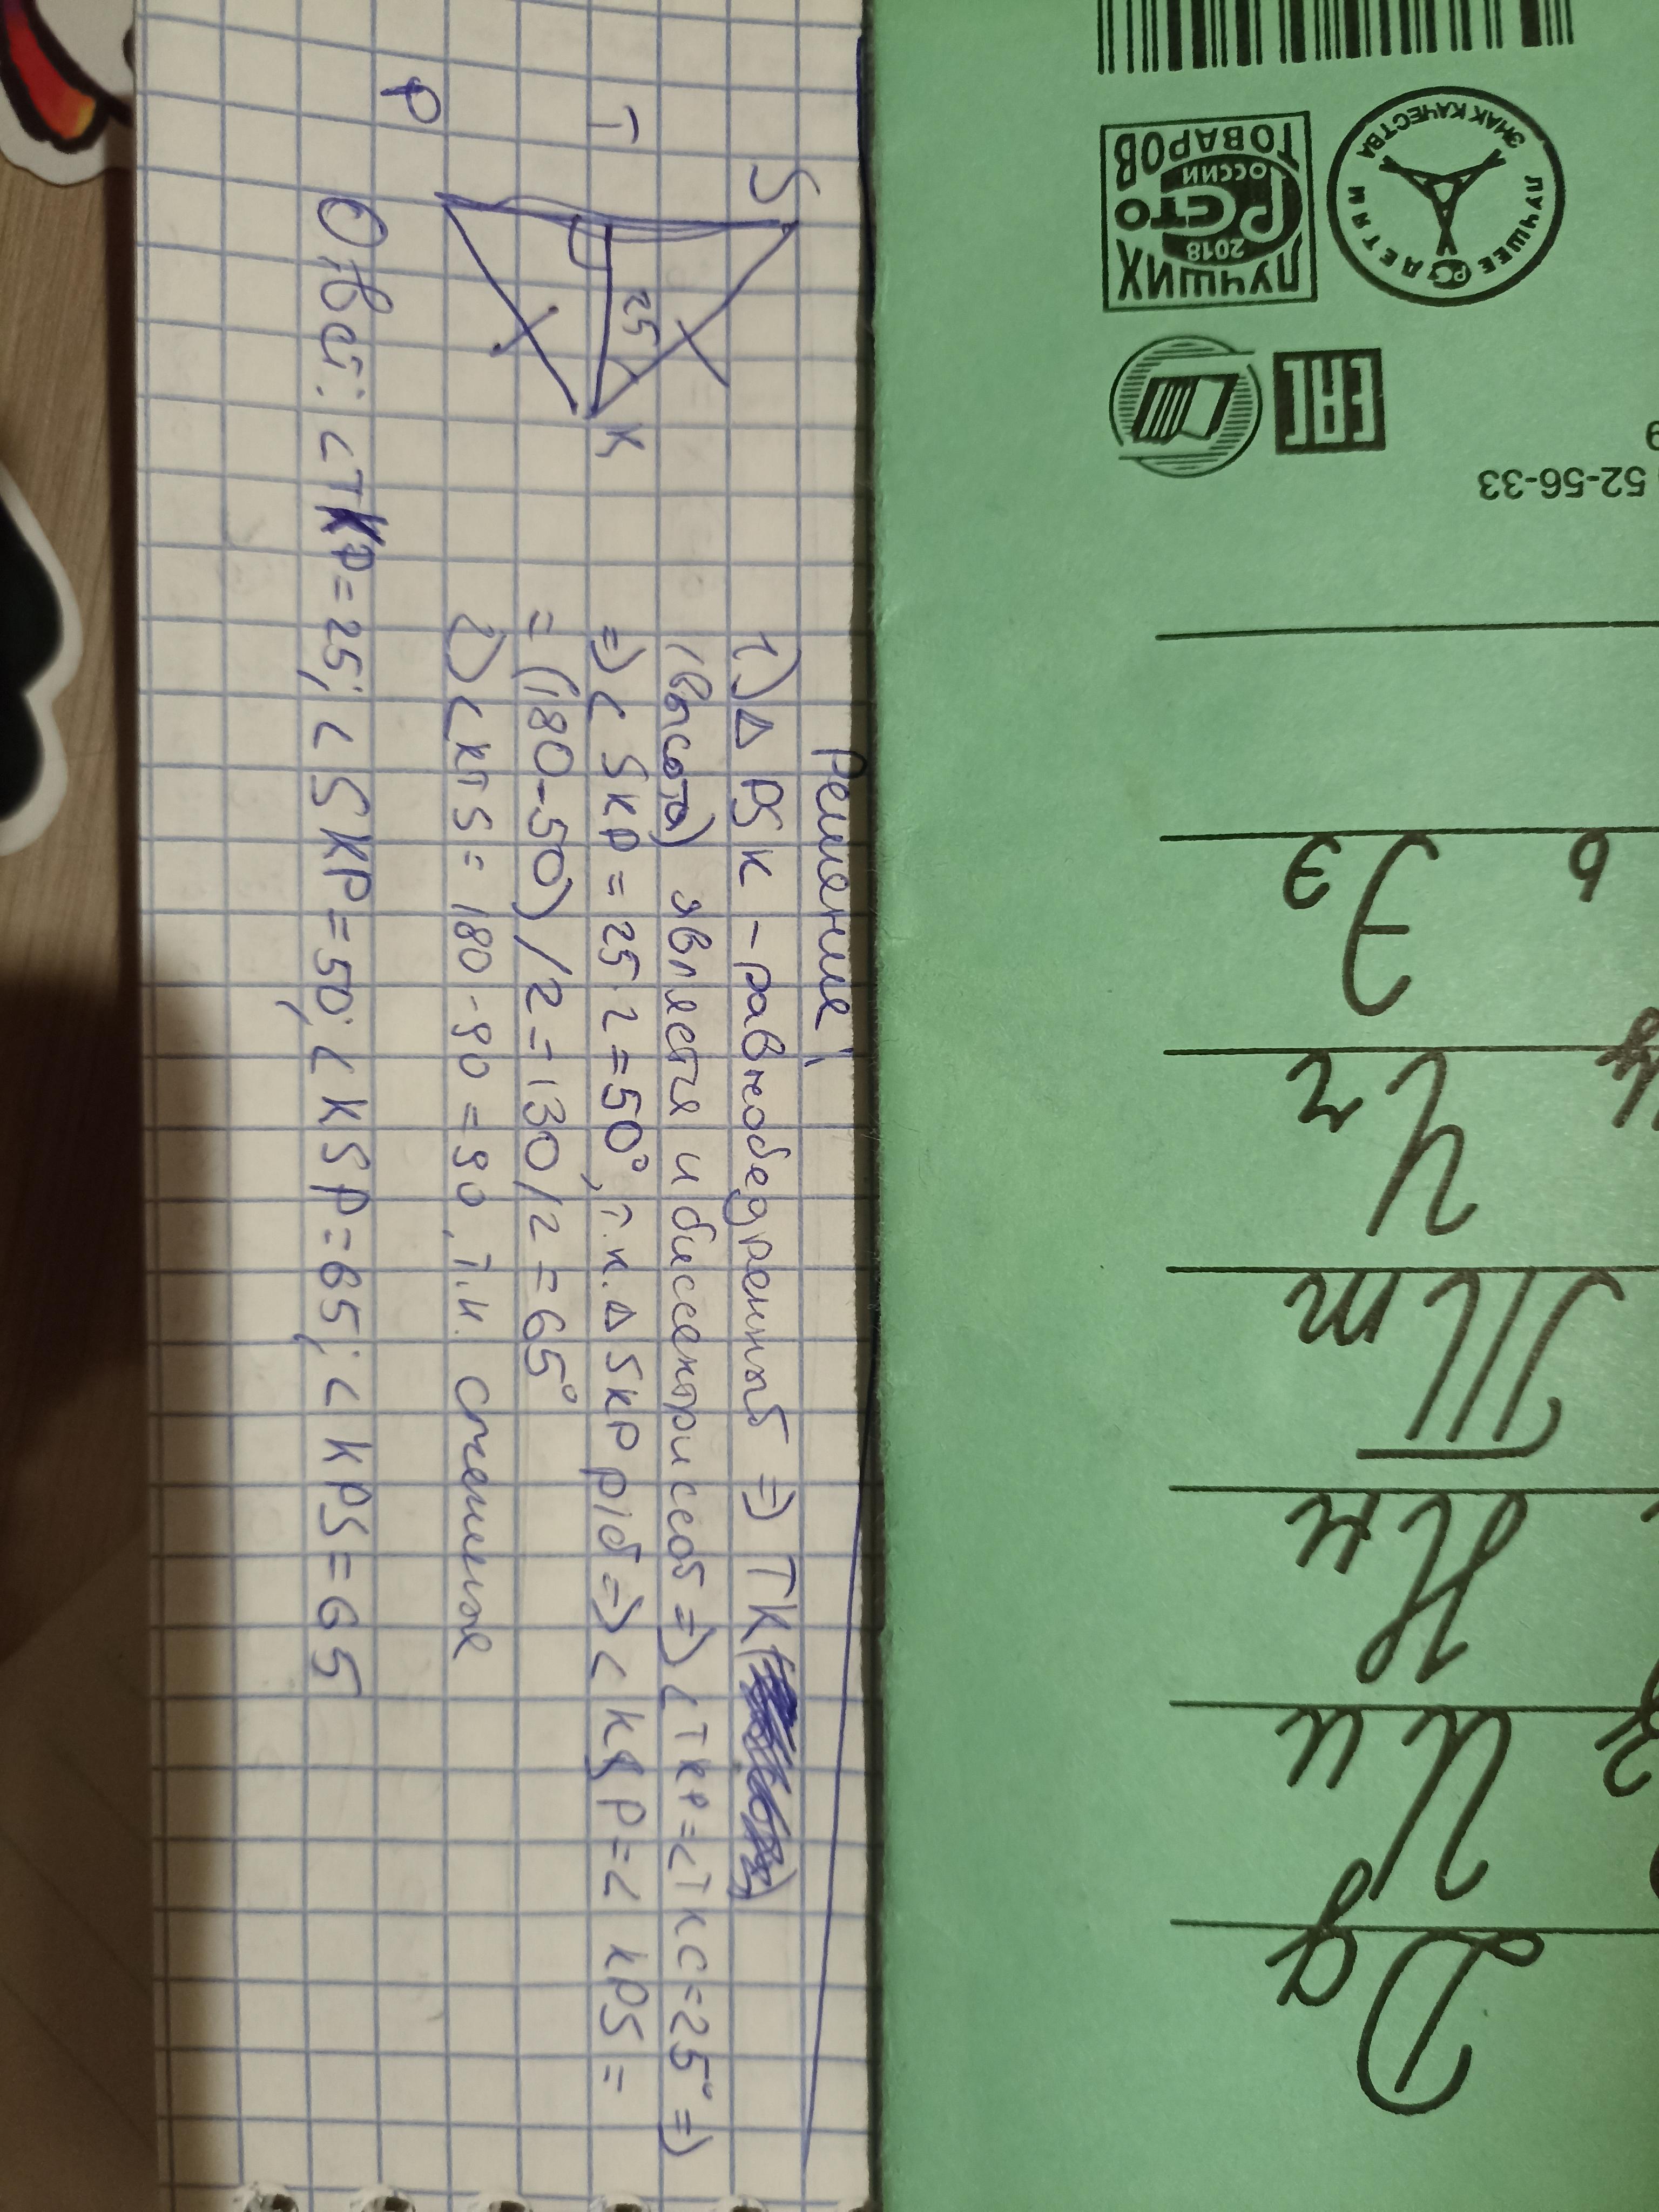 Решение:
1) △ PSK – равнобедренный => TK
(высота) является и биссектрисой => ∠TKP=∠TKC=25° =>
=> ∠ SKP = 25·2=50°, т.к. △ SKP р/б => ∠ KSP=∠ KPS =
= (180-50)/2=130/2=65°
2) ∠KTS= 180-90=90, т.к. смежные
Ответ: ∠TKP=25; ∠SKP=50; ∠KSP=65; ∠KPS=65
S
T
P
K
25
52-56-33
9
ЛУЧШИХ
2018
СТО
РОССИИ
ТОВАРОВ
ЗНАК КАЧЕСТВА
ЛУЧШЕЕ ДЕТЯМ
ЕАС
Дд
Ии
Нн
Тт
Чч
Ээ
ь